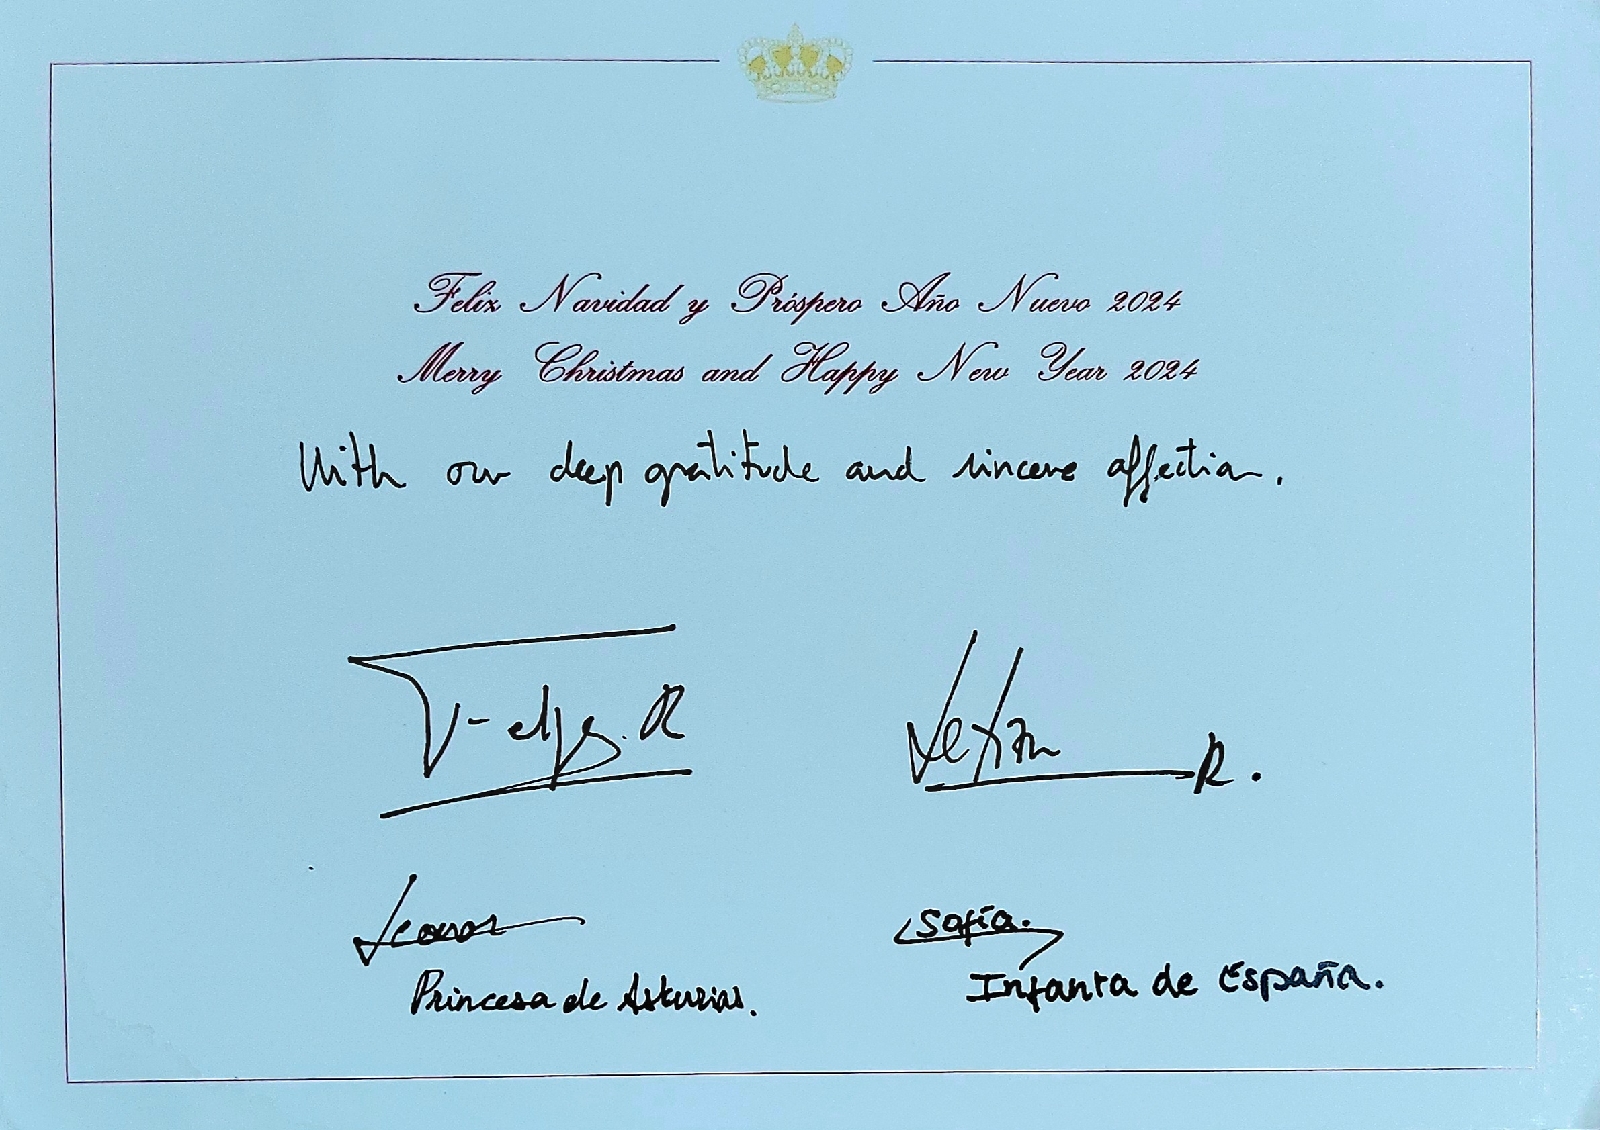 Feliz Navidad y Próspero Año Nuevo 2024
Merry Christmas and Happy New Year 2024
With our deep gratitude and sincere affection.
Felipe R
Letizia R.
Leonor
Princesa de Asturias.
Sofía.
Infanta de España.